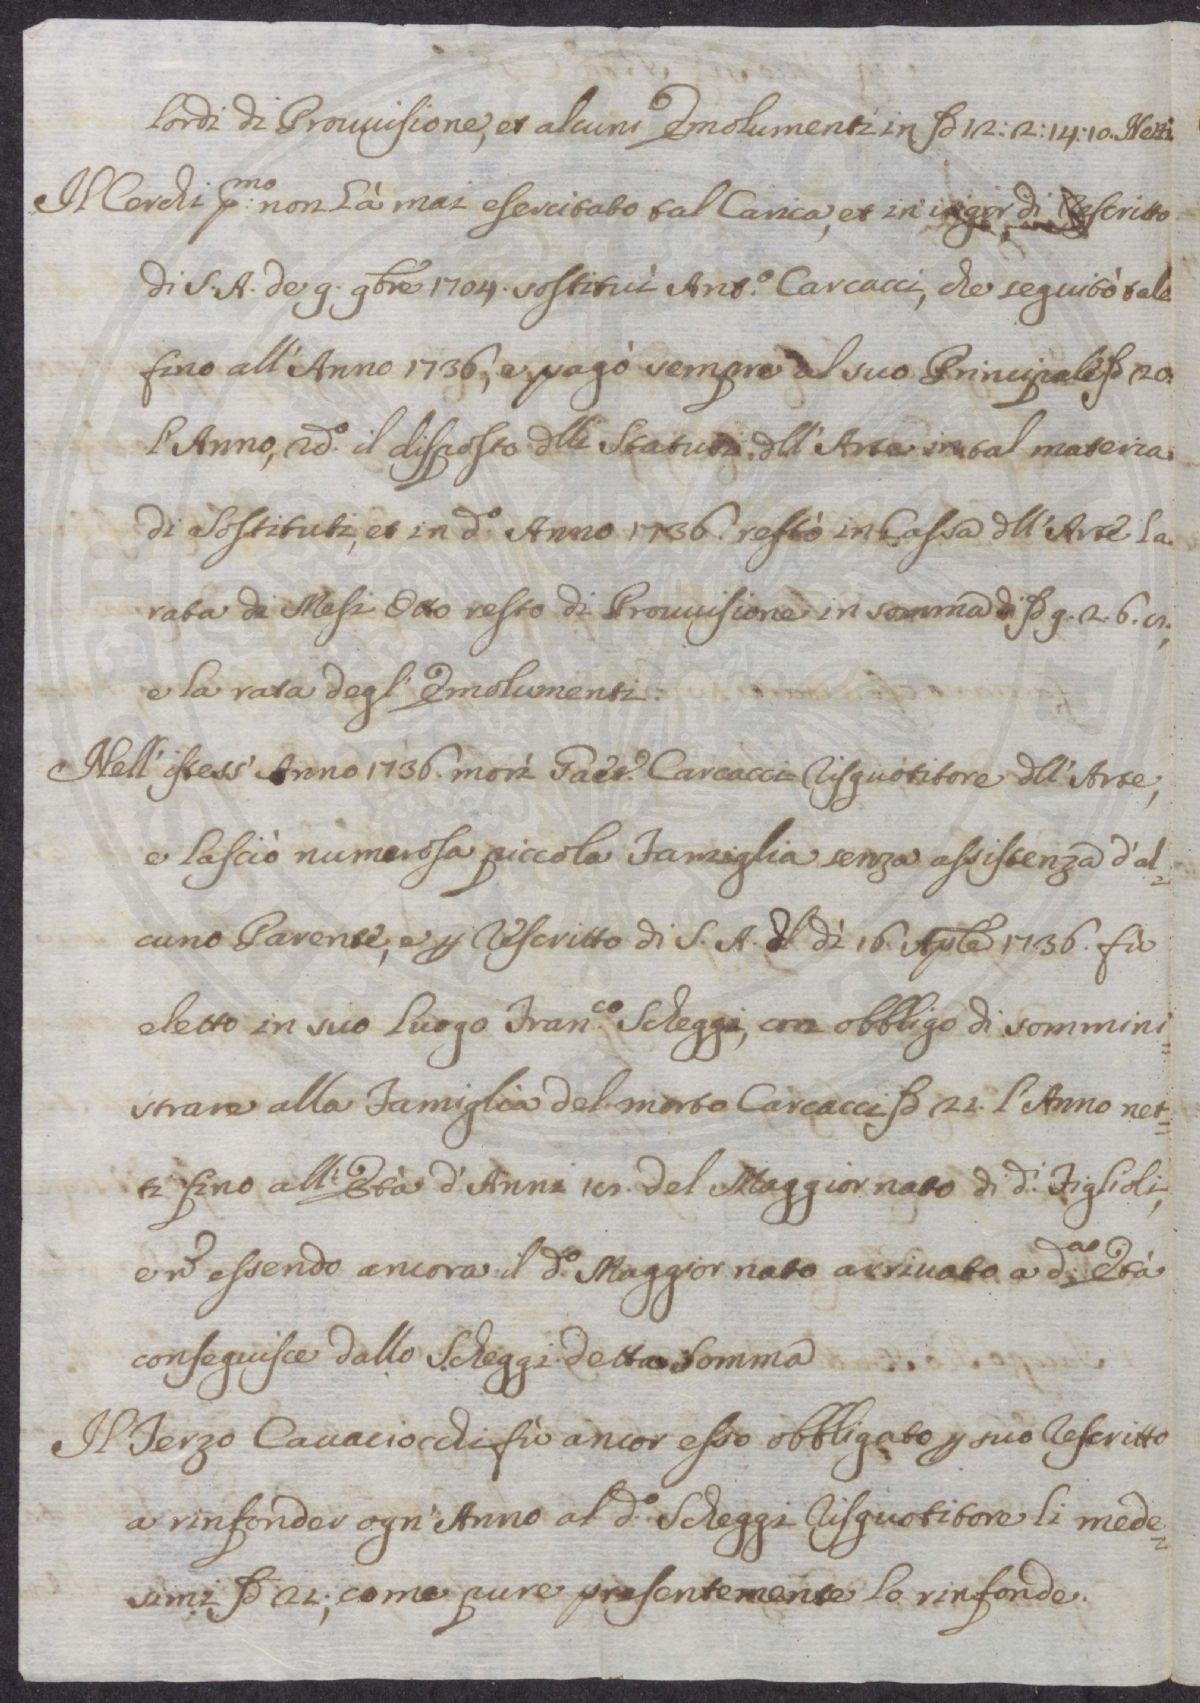 lordi di Provvisione, et alcuni Emolumenti in ∫D 12: 2: 14: 10. Netti
Il Cerchi p:mo non hà mai esercitato tal Carica, et in vigor di Rescritto
di S. A. de 9. 9bre 1704. sostituì Ant.o Carcacci, che seguitò tale
fino all'Anno 1736, e pagò sempre al suo Principale ∫D 20.
l'Anno, 2do. il disposto dlli Statuti dll'Arte in tal materia
di Sostituti, et in d.o Anno 1736. restò in Cassa dll'Arte la
rata di Mesi Otto resto di Provvisione in somma di ∫D 9. 2. 6. 5,
e la rata degl'Emolumenti:
Nell'istess'Anno 1736. morì Carcacci Risquotitore dll'Arte,
e lasciò numerosa piccola Famiglia senza assistenza d'al=
cuno Parente, e p Rescritto di S. A. dl dì 16. Aple 1736. fù
eletto in suo luogo Fran.co Scheggi, con obbligo di sommini=
strare alla Famiglia del morto Carcacci ∫D 21. l'Anno net=
ti fino all'Età d'Anni 15. del Maggior nato di d.i Figlioli,
e nō essendo ancora il d.o Maggior nato arrivato a d.ae Età
conseguisce dallo Scheggi detta Somma
Il Terzo Cavaciocchi fù ancor esso obbligato p suo Rescritto
a rinfonder ogn'Anno al d.o Scheggi Risquotitore li mede=
simi ∫D 21; come pure presentemente lo rinfonde.